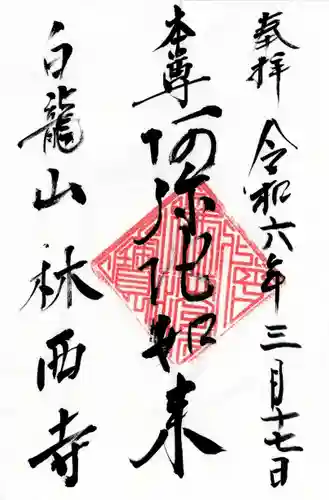 奉拝 令和六年三月十七日
本尊 阿弥陀如来
白龍山 林西寺